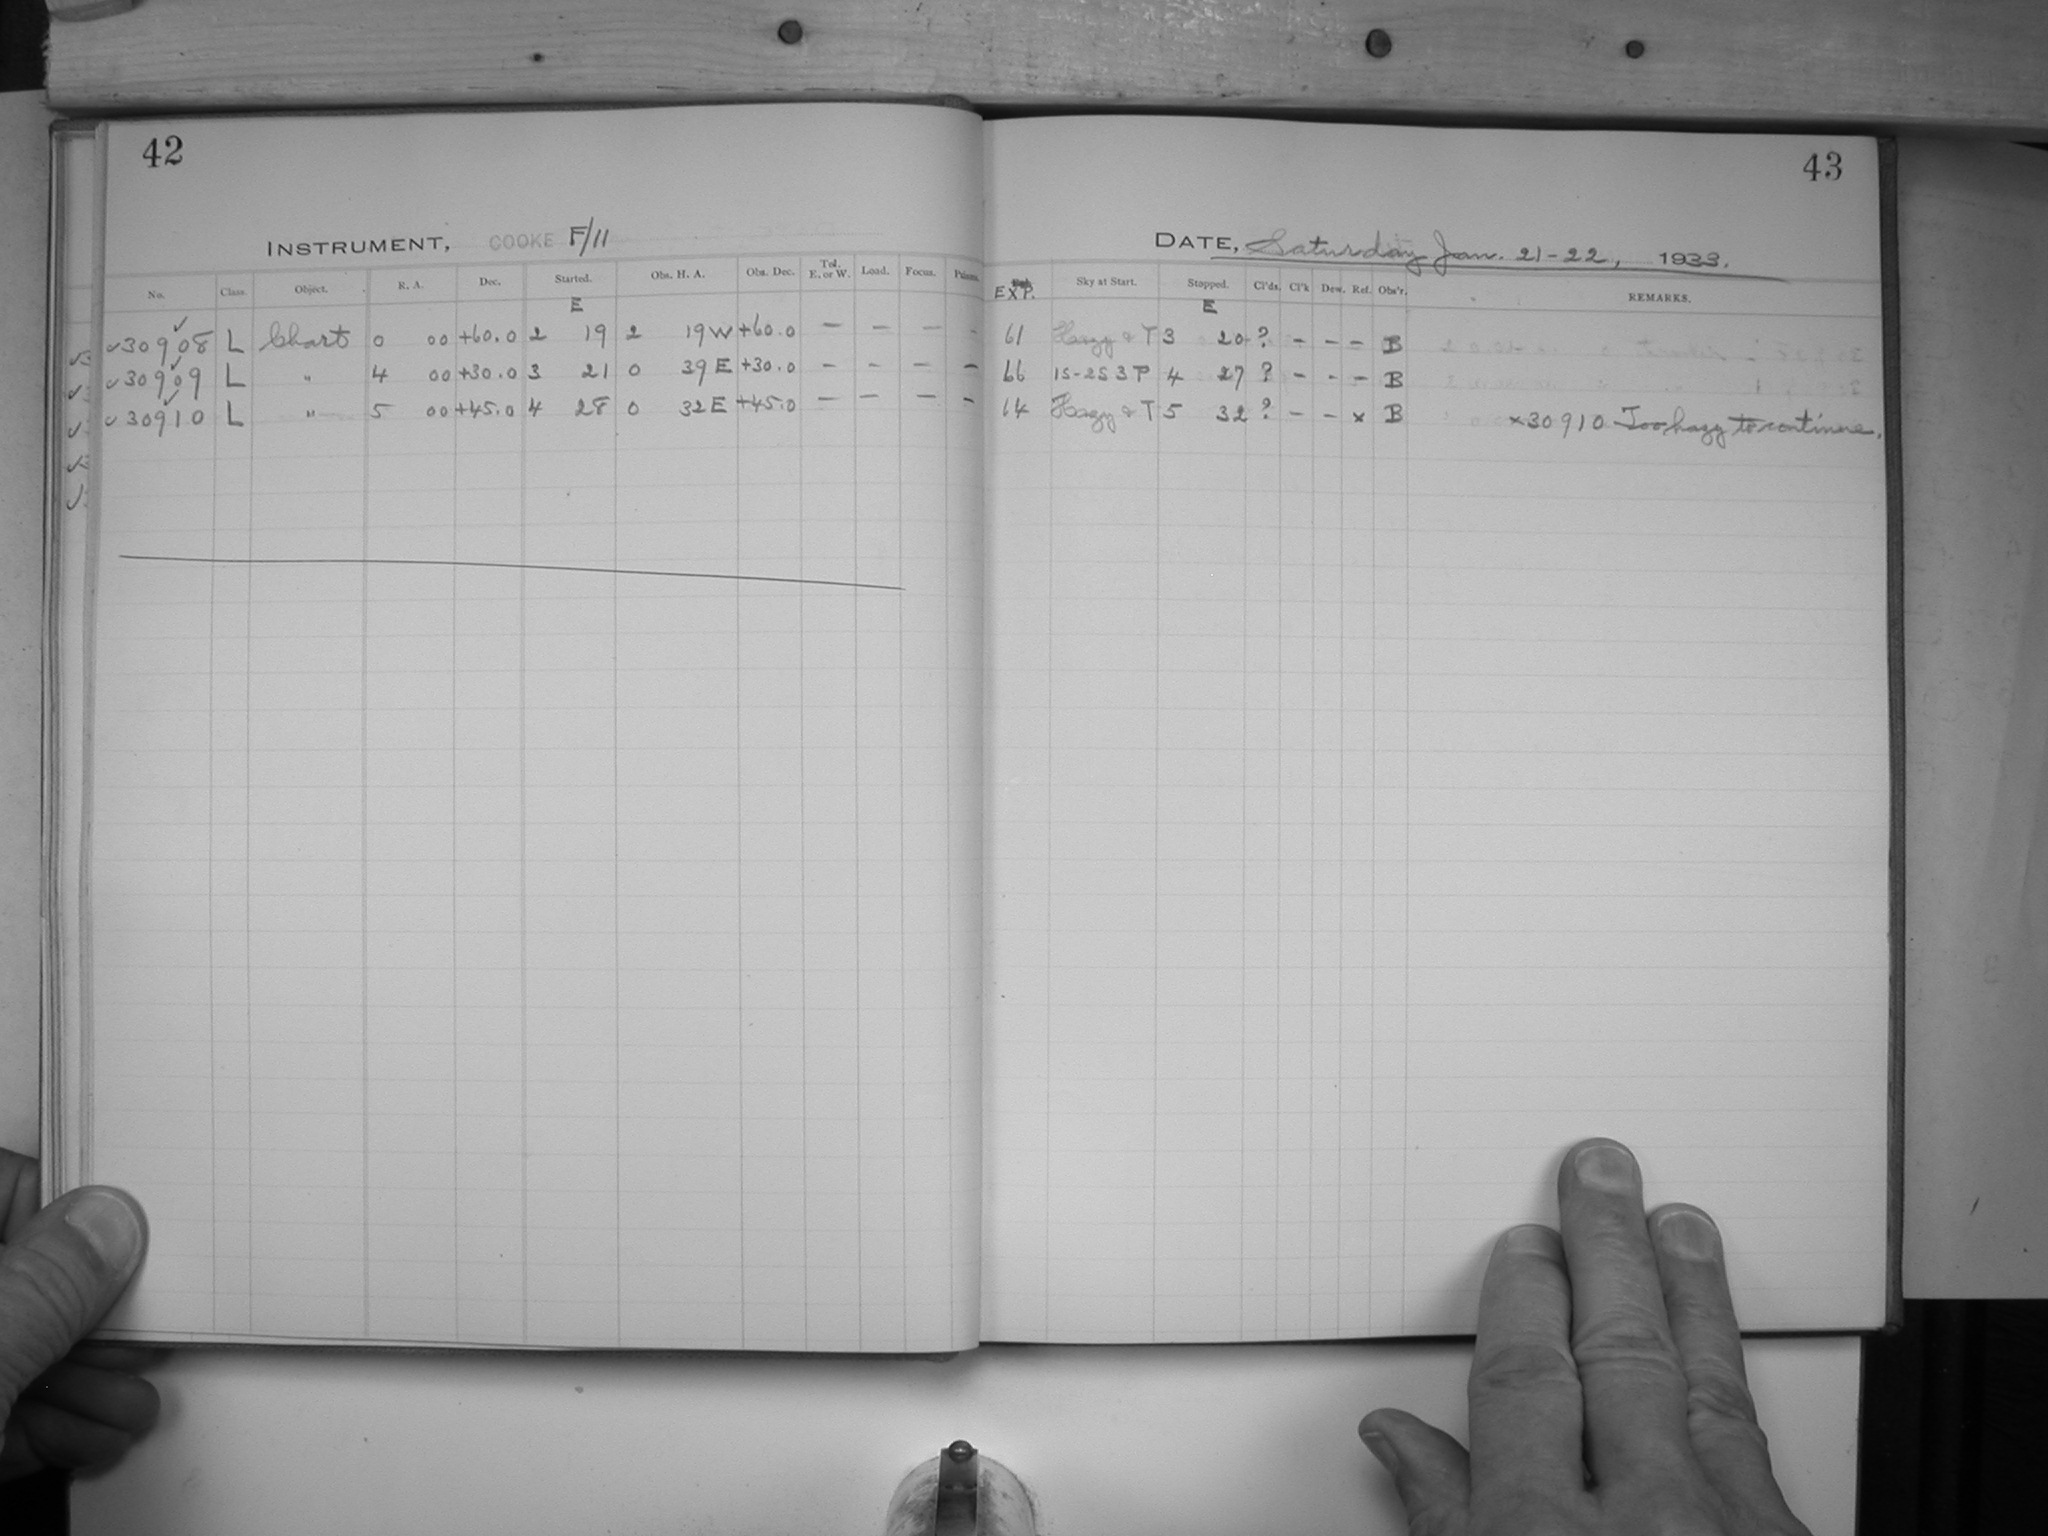 42
INSTRUMENT, COOKE F/11
No. Class. Object. R. A. Dec. Started. Obs. H. A. Obs. Dec. Tel. E. or W. Load. Focus.
E
✓30908 L Chart 0 00 +60.0 2 19 2 19W +60.0 — — — -
✓30909 L " 4 00 +30.0 3 21 0 39E +30.0 — — — —
✓30910 L " 5 00 +45.0 4 28 0 32E +45.0 — — — —
43
DATE, Saturday Jan. 21-22, 1933.
EXP. Sky at Start. Stopped. Cl'ds. Cl'k Dew. Ref. Obs'r. REMARKS.
E
61 Hazy & T 3 20 ? - - - B
66 1S-2S 3 P 4 27 ? - - - B
64 Hazy & T 5 32 ? - - x B x30910 Too hazy to continue.